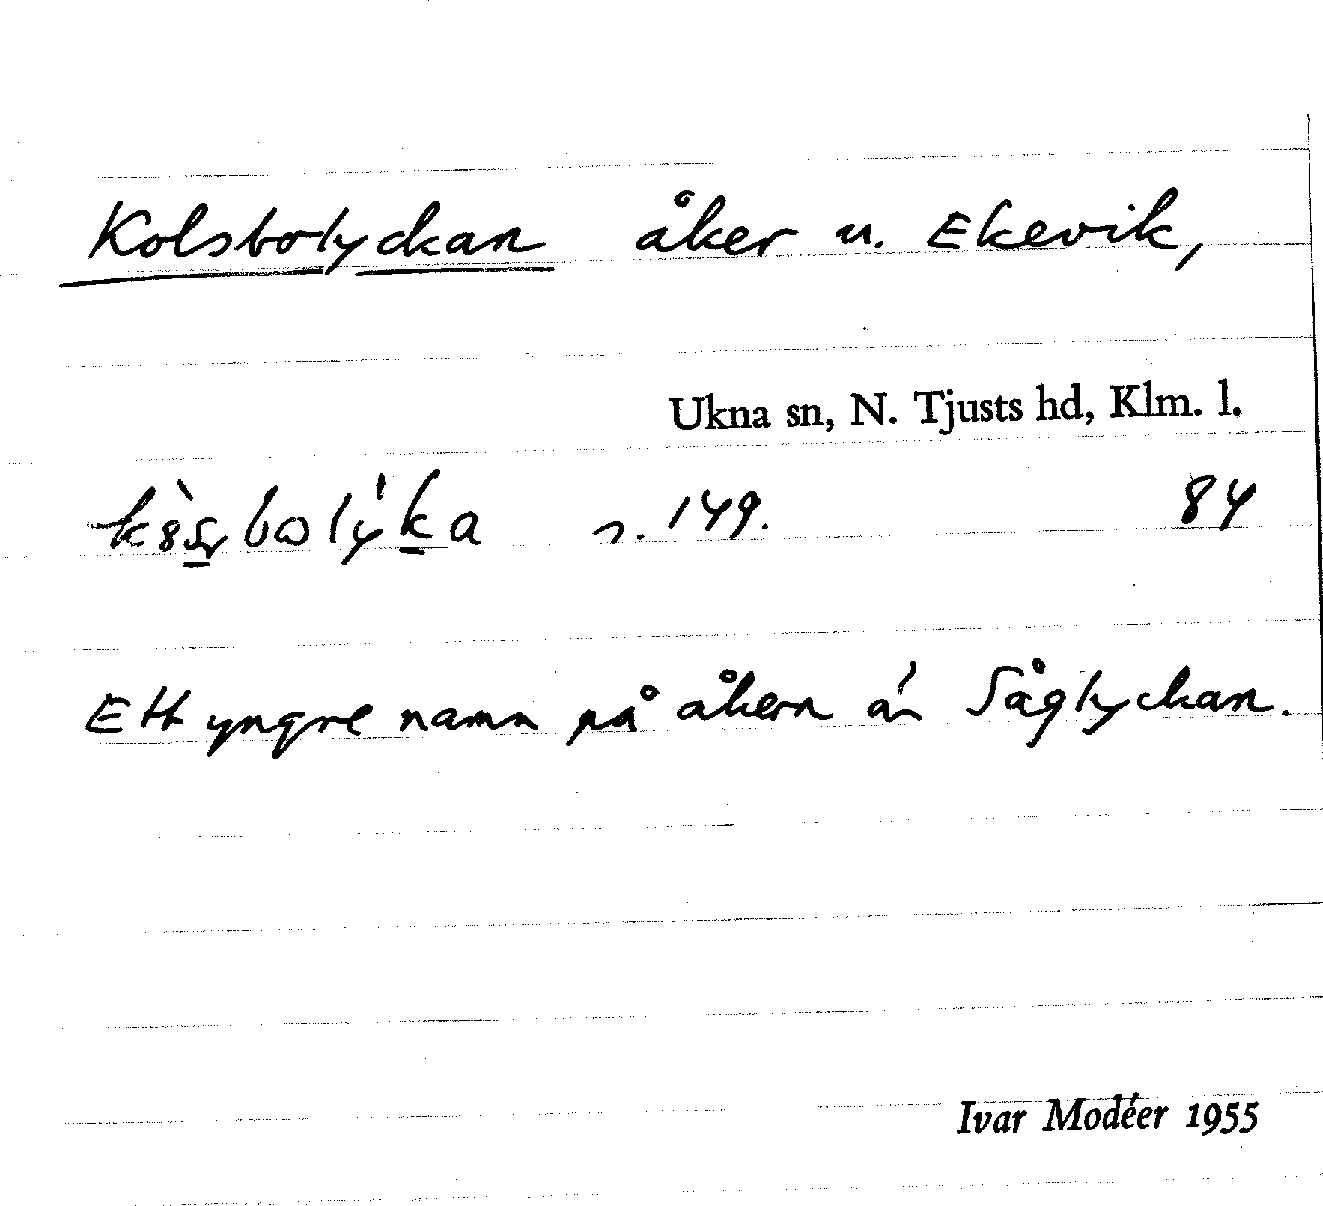 Kolsbolyckan åker u. Ekevik,
Ukna sn, N. Tjusts hd, Klm. l.
n. 149. 84
Ett yngre namn på åkern än Såglyckan.
Ivar Modéer 1955